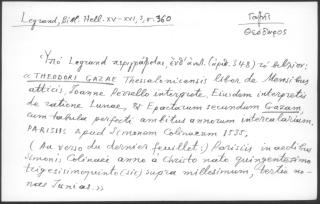 Legrand, Bibl. Hell. XV-XVI, 3, σ. 360
Γαζῆς
Θεόδωρος
Ὑπὸ Legrand περιγράφεται, ἐνθ' ἀνωτ. (ἀριθ. 348) τὸ ἑξῆς:
« THEODORI GAZAE Thessalonicensis liber de Mensibus
atticis, Ioanne Perrello interprete. Eiusdem interpretis
de ratione Lunae, & Epactarum secundum Gazam,
cum tabula perfecti ambitus annorum intercalarium.
PARISIIS apud Simonem Colinaeum 1535.
( Au verso du dernier feuillet:) Parisiis in aedibus
Simonis Colinaei anno a Christo nato quingentesimo
trigesimoquinto (sic) supra millesimum, tertio no-
nas Junias.»